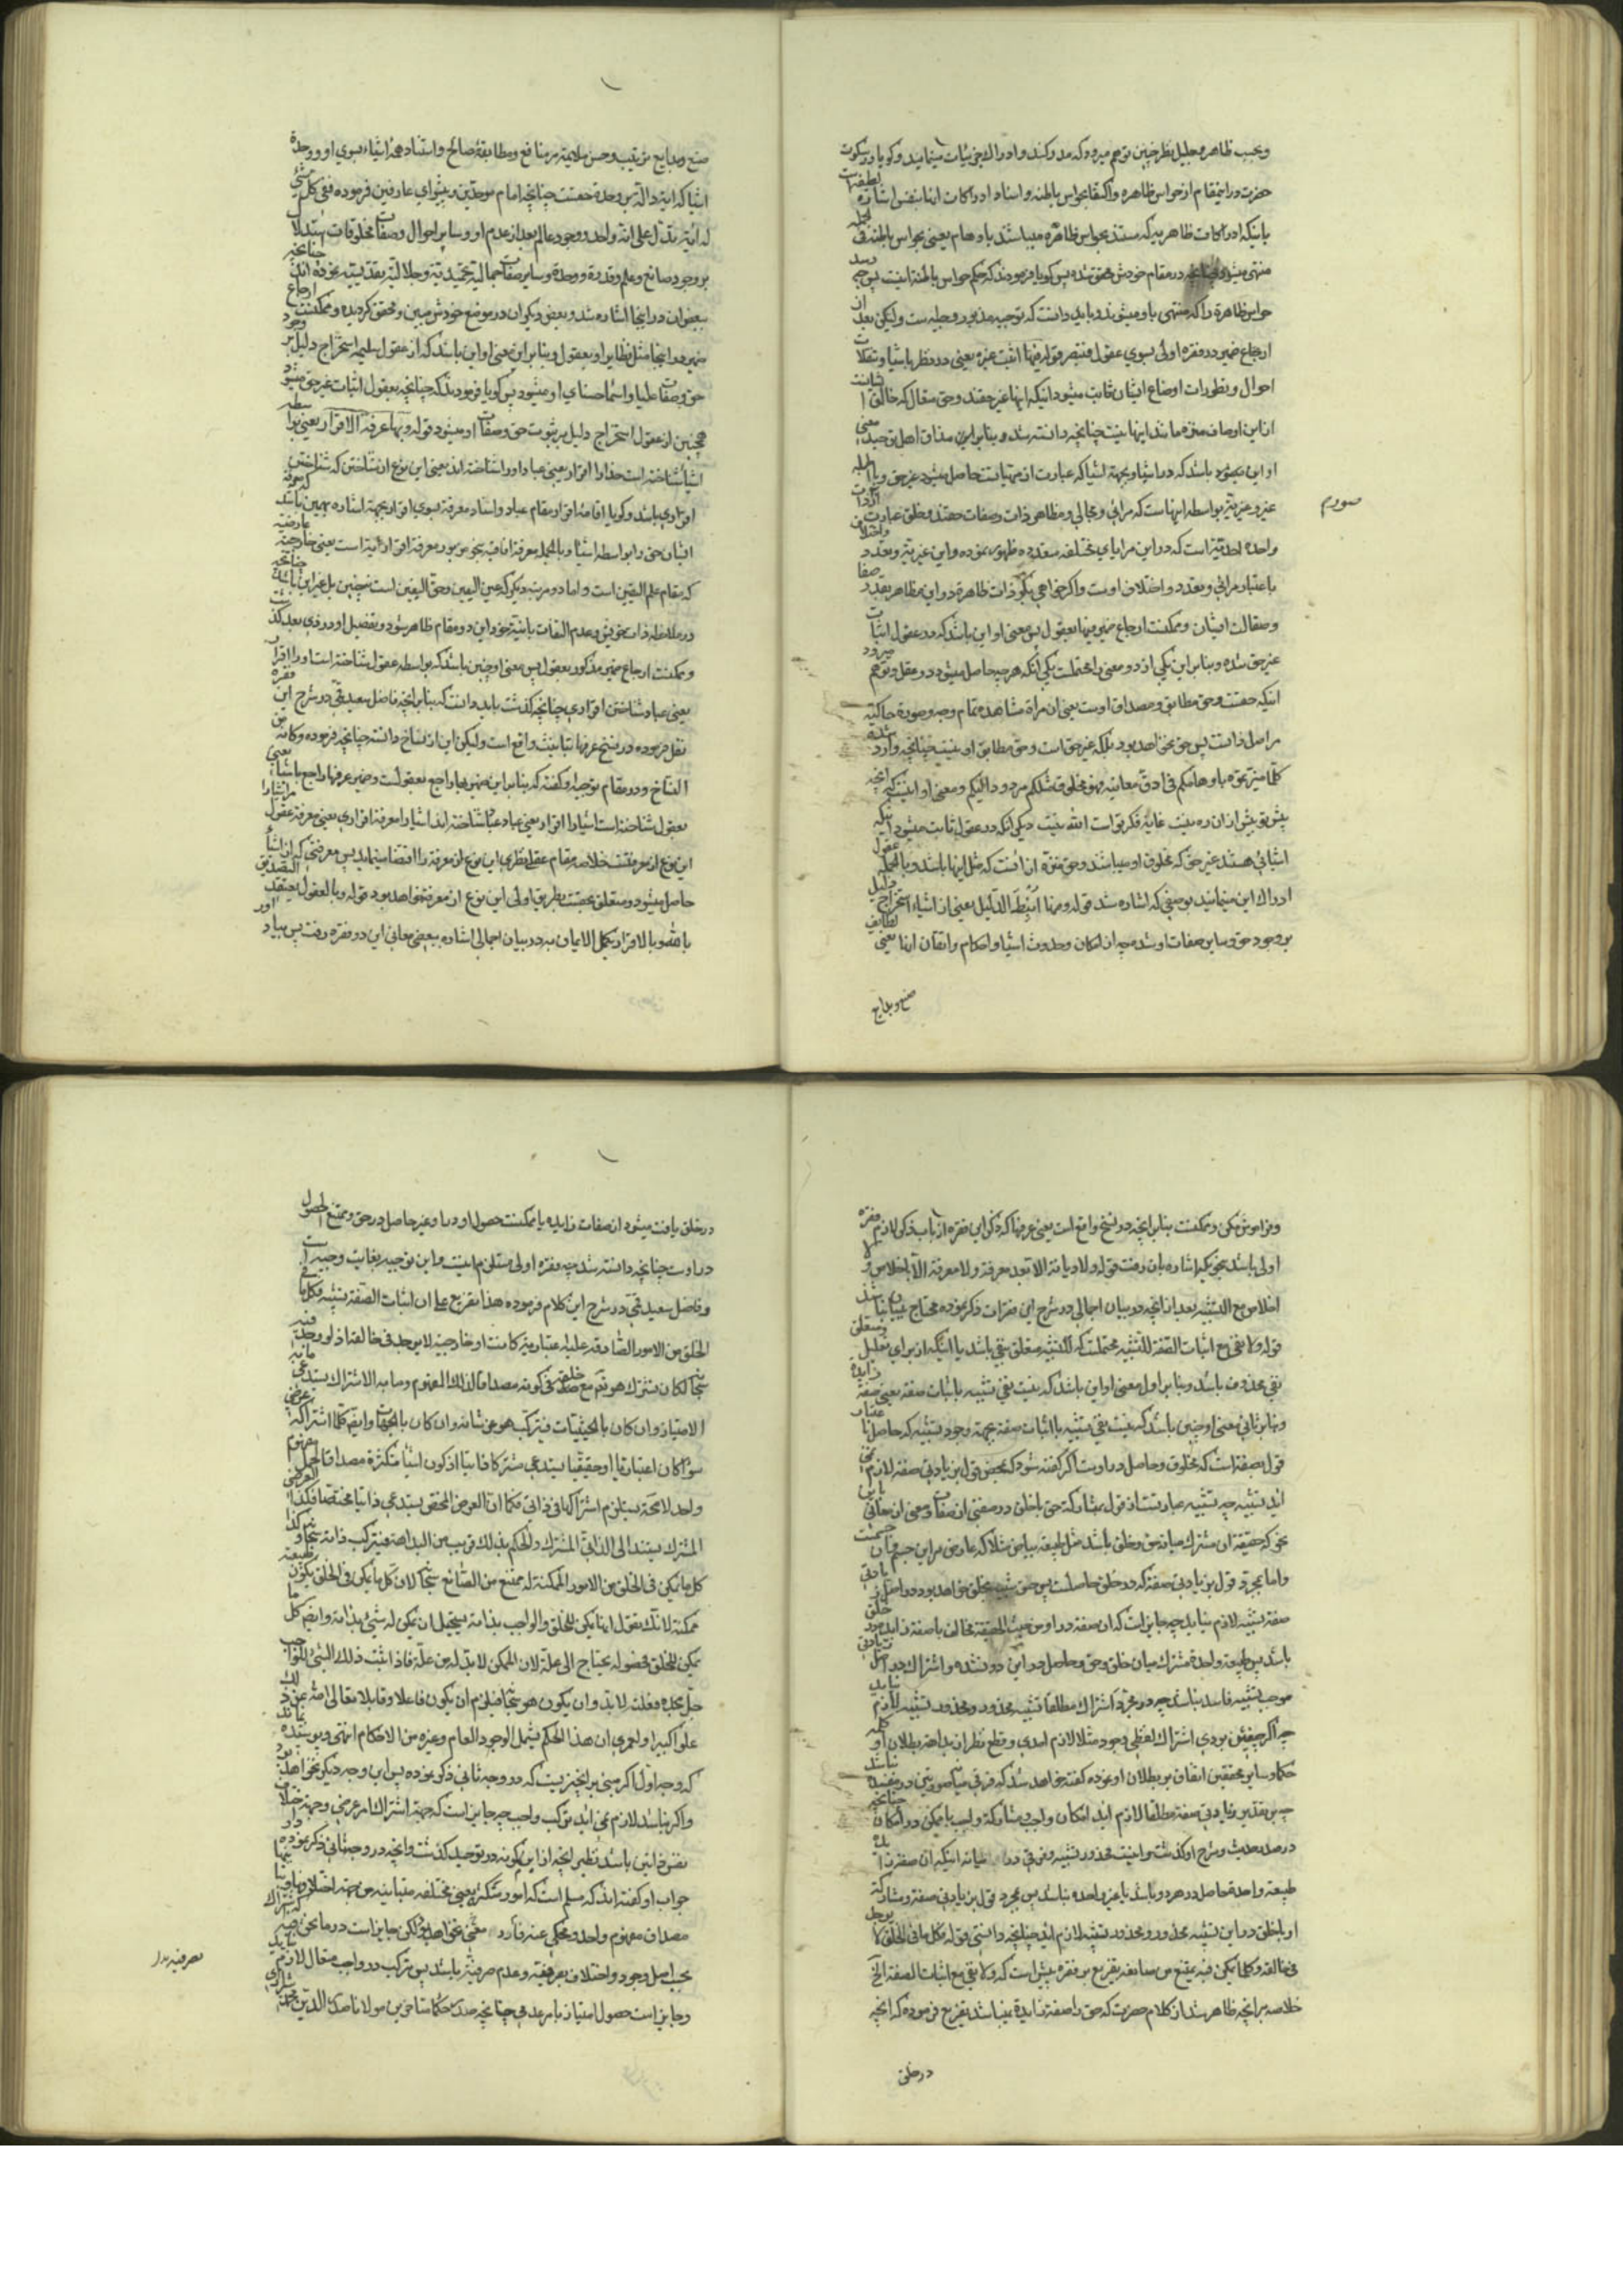 وبحسب ظاهر وجلیل نظر چنین توهم میرود که مدرکند و ادراک جزئیات مینمایند و کویا در سکوت
حضرت در اینمقام از حواس ظاهره و اکتفا بحواس باطنه و اسناد ادراکات اینها بنفس اشاره لطیفه است
باینکه ادراکات ظاهریه که مستند بحواس ظاهره میباشند باوهام یعنی بحواس باطنه
منتهی میشود چنانچه در مقام خودش محقق شده پس کویا فرمودند که حکم حواس باطنه اینست پس چه رسد
حواس ظاهره را که منتهی باو میشوند و باید دانست که توجیه مذبور وجیه است ولیکن بعد از
ارجاع ضمیر در فقره اولی بسوی عقول فتبصر قوله فیها اثبت غیره یعنی در نظر باشیا و تنقلات
احوال و تطورات اوضاع ایشان ثابت میشود اینکه اینها غیر حقند و حق متعال که خالق اشیانست
از این اوصاف منزه مانند اینها نیست چنانچه دانسته شد و بنابراین مذاق اهل توحید معنی
او این میشود باشد که در اشیا و بجهة اشیا که عبارت از مهیاتست حاصل میشود غیر حق و بالجمله
غیر و غیریة بواسطه اینهاست که مرائی و مجالی و مظاهر ذات و صفات حقند و خلق عبارت از ذات
واحده احدیة است که در این مرایای مختلفه متعدده ظهور نموده و این غیریة و تعدد و اختلاف
باعتبار مرائی و تعدد و اختلاف اوست و اکر خواهی بکو ذات ظاهره در این مظاهر بقدر صفا
و صقالت ایشان و ممکنست ارجاع ضمیر فیها بعقول پس معنی او این باشد که در عقول اثبات
غیر حق شده و بنابر این یکی از دو معنی را محتملست یکی آنکه هر چه حاصل میشود در عقل و توهم میرود
اینکه حقست و حق مطابق و مصداق اوست یعنی آن مرآة مشاهده تمام وجه و صورة حاکیه
مر اصل ذاتست پس حق نخواهد بود بلکه غیر حق است و حق مطابق او نیست چنانچه وارد شده
کلما میزتموه باوهامکم فی ادق معانیه فهو مخلوق مثلکم مردود الیکم و معنی او اینست که آنچه
پیش تو بیش از ان ره نیست غایة فکر تو است الله نیست دیکر آنکه در عقول ثابت میشود اینکه
اشیائی هستند غیر حق که مخلوق او میباشند و حق منزه از آنست که مثل اینها باشند و بالجمله عقول
ادراک این مینمایند بوصفی که اشاره شد قوله و منها انبط الدلیل یعنی از اشیاء استخراج دلیل
بر وجود حق و سایر صفات او شده چه از امکان و حدوث اشیا و احکام و اتقان اینها یعنی لطایف
صنع و بدایع
صنع و بدایع ترتیب و حسن ملایمة مر منافع و مطابقة مصالح و استناد همه اشیاء بسوی او و وحدة
اشیا که ایة داله بر وحدة حقست چنانچه امام موحدین و پیشوای عارفین فرموده ففی کل شئ
له ایة تدل علی انه واحد و وجود عالم بعد از عدم او و سایر احوال و صفات مخلوقات استدلال
بر وجود صانع و علم و قدرة و وحدة و سایر صفات جمالیه تحمیدیة و جلالیة تقدیسیه نموده اند چنانچه
ببعض ان در اینجا اشاره شد و بعض دیکر ان در موضع خودش مبین و محقق کردیده و ممکنست ارجاع
ضمیر در اینجا مثل نظایر او بعقول و بنابر این معنی او این باشد که از عقول سلیمه استخراج دلیل بر وجود
حق و صفات علیا و اسماء حسنای او میشود پس کویا فرمودند که چنانچه بعقول اثبات غیر حق میشود
همچنین از عقول استخراج دلیل بر ثبوت حق و صفات او میشود قوله و بها عرفه الاقرار یعنی بواسطه
اشیا شناخته است خدا را اقرار یعنی عباد او را شناخته اند یعنی این نوع از شناختن که شناختن
اقراری باشد و کویا اقامه اقرار بمقام عباد و اسناد معرفة بسوی اقرار بجهة اشاره بهمین باشد که معرفة
ایشان حق را بواسطه اشیا و بالجمله معرفة افاقیه بنحو مزبور معرفة اقراریة است یعنی خارجیة عارضیة
که مقام علم الیقین است و اما در مرتبه دیکر که عین الیقین و حق الیقین است نچنین بل غیر این باشد چنانچه
در ملاحظه ذات حق و عدم التفات بانیة خود این دو مقام ظاهر شود و تفصیل او در فدی بعد کذشت
و ممکنست ارجاع ضمیر مذکور بعقول پس معنی او چنین باشد که بواسطه عقول شناخته است او را اقرار
یعنی عباد شناختن اقراری چنانچه کذشت باید دانست که بنابر انچه فاضل سعید قمی در شرح این فقره
نقل فرموده در نسخ عرفها بتانیث واقع است ولیکن این از نساخ دانسته چنانچه فرموده وکانه من
النساخ و در مقام توجیه او کفته که بنابر این ضمیر بها راجع بعقولست و ضمیر عرفها راجع باشیا یعنی
بعقول شناخته است اشیا را اقرار یعنی عباد عقلا شناخته اند اشیا را معرفة اقراری یعنی معرفة عقول مر اشیا را
این نوع از معرفتست خلاصه مقام عقل نظری این نوع از معرفة را اقتضا مینماید پس معرفتی که از اشیا
حاصل میشود و متعلق بحقست بطریق اولی این نوع از معرفة خواهد بود قوله و بالعقول یعتقد التصدیق
بالله و بالاقرار یکمل الایمان به در بیان اجمالی اشاره ببعض معانی این دو فقره رفت پس بیاد اور
و فراموش مکن و ممکنست بنابر انچه در نسخ واقع است یعنی عرفها که ذکر این فقره از باب ذکر لازم فقره
اولی باشد بنحویکه اشاره بان رفت قوله ولا دیانة الا بعد معرفة ولا معرفة الا باخلاص ولا
اخلاص مع التشبیه بعد از انچه در بیان اجمالی در شرح این فقرات ذکر نموده محتاج ببیان نباشد
قوله ولا نفی مع اثبات الصفة للتشبیه محتملست که للتشبیه متعلق بنفی باشد یا اینکه از برای تعلیل و متعلق
نفی محذوف باشد و بنابر اول معنی او این باشد که نیست نفی تشبیه باثبات صفه یعنی صفة زایده
و بنابر ثانی معنی او چنین باشد که نیست نفی تشبیه با اثبات صفة بجهة وجود تشبیه که حاصل از
قول بصفة است که مخلوق و حاصل در اوست اکر کفته شود که بمحض قول بزیادتی صفة لازم نمی
اید تشبیه چه تشبیه عبارتست از قول بمشارکة حق با خلق در صفتی از صفات و معنی از معانی
بنحو که حقیقة ان مشترک میانه حق و خلق باشد مثل طبیعة بیاض مثلا که عارض مر این جسم و آن جسمست
و اما بمجرد قول بزیادتی صفة که در خلق حاصلست پس حق شبیه بخلق نخواهد بود و در اصل زیادتی
صفة تشبیه لازم نیاید چه جایز است که ان صفة در او من حیث الحقیقة مخالف با صفة زایده در خلق
باشد پس طبیعة واحدة مشترک میان خلق و حق و حاصل در این دو نشده و اشتراک در اصل زیادتی
موجب تشبیه فاسد نباشد چه در مجرد اشتراک مطلقا تشبیه محذور و محذور تشبیه لازم نیاید
چه اکر چنین بودی اشتراک لفظی وجود مثلا لازم امدی و قطع نظر از بداهة بطلان او کلمه
حکما و سایر محققین اتفاق بر بطلان او نموده کفته خواهد شد که فرقی میانه صورتین در مفسده نباشد
چه بر تقدیر زیادتی صفة مطلقا لازم اید امکان واجب و مشارکة واجب با ممکن در امکان چنانچه
در صدر حدیث و شرح او کذشت و اینست محذور تشبیه و فرقی در ان میانه اینکه ان صفة زایده
طبیعة واحدة حاصل در هر دو باشد یا غیر واحده نباشد پس بمجرد قول بزیادتی صفة و مشارکة
او با خلق در این تشبیه محذور و محذور تشبیه لازم اید چنانچه دانستی قوله فکل ما فی الخلق لا یوجد
فی خالقه و کلما یمکن فیه یمتنع من صانعه تفریع بر فقره پیش است که ولا نفی مع اثبات الصفة الخ
خلاصه بر انچه ظاهر شد از کلام حضرت که حق را صفة زایدة نمیباشد تفریع فرموده که انچه
در خلق
در خلق یافت میشود از صفات زایده یا ممکنست حصول او در او غیر حاصل در حق و ممتنع الحصول
در اوست چنانچه دانسته شد چه فقره اولی مستلزم اینست و این توجیه بغایت وجیه است
و فاضل سعید قمی در شرح این کلام فرموده هذا تفریع علی ان اثبات الصفة تشبیه فکل ما فی
الخلق من الامور الصادقة علیه اعتباریة کانت او خارجیة لا یوجد فی خالقه اذ لو وجد فیه
سبحانه لکان یشترک هو تع مع خلقه فی کونه مصداقا لذلک المفهوم و ما به الاشتراک یستدعی ما به
الامتیاز وان کان بالحیثیات فیترکب هو عز شانه وان کان بالجهات وایضا کلما اشتراکه عرضی
سواء کان اعتباریا او حقیقیا یستدعی مشترکا ذاتیا اذ کون اشیاء متکثرة مصداقا لحمل مفهوم
واحد لا محة یستلزم اشتراکها فی ذاتی فکما ان العرض المختص یستدعی ذاتیا مختصا فکذا العرضی
المشترک یستند الی الذاتی المشترک والحکم بذلک قریب من البداهة فیترکب ذاته سبحانه و کذا
کل ما یمکن فی الخلق من الامور الممکنة له ممتنع من الصانع سبحانه لان کل ما یمکن فی الخلق یکون طبیعة
ممکنة لانک تقول انها یمکن للخلق والواجب بذاته یستحیل ان یمکن له شئ بذاته وایضا کل ما
یمکن للخلق فحصوله یحتاج الی علة لان الممکن لابد له من علة فاذا اثبت ذلک الشئ للواجب
جل مجده فعلته لابد وان یکون هو سبحانه فیلزم ان یکون فاعلا وقابلا تعالی الله عن ذلک
علوا کبیرا ولعمری ان هذا الحکم یشمل الوجود العام وغیره من الاحکام انتهی و پوشیده نماند
که وجه اول اکر مبنی بر انچیزیست که در وجه ثانی ذکر نموده پس این وجه دیکر نخواهد بود
و اکر نباشد لازم نمی اید ترکب واجب چه جایز است که جهة اشتراک امر عرضی و جهة خلاف
نفس ذاتین باشد نظیر انچه از ابن کمونه در توحید کذشت و انچه در وجه ثانی ذکر نموده
جواب او کفته اند که مسلم است که امور متکثره یعنی مختلفه متباینه من جهة اختلافها و تباینها
مصداق مفهوم واحد و محکی عنه فارد نمی نخواهد بود لکن جایز است در ما نحن فیه که اشتراک
بحسب اصل وجود و اختلاف بصرفیة و عدم صرفیة باشد پس ترکب در واجب متعال لازم نیاید
و جایز است حصول امتیاز بامر عدمی چنانچه صدر حکما متاخرین مولانا صدر الدین محمد شیرازی
صرفیة